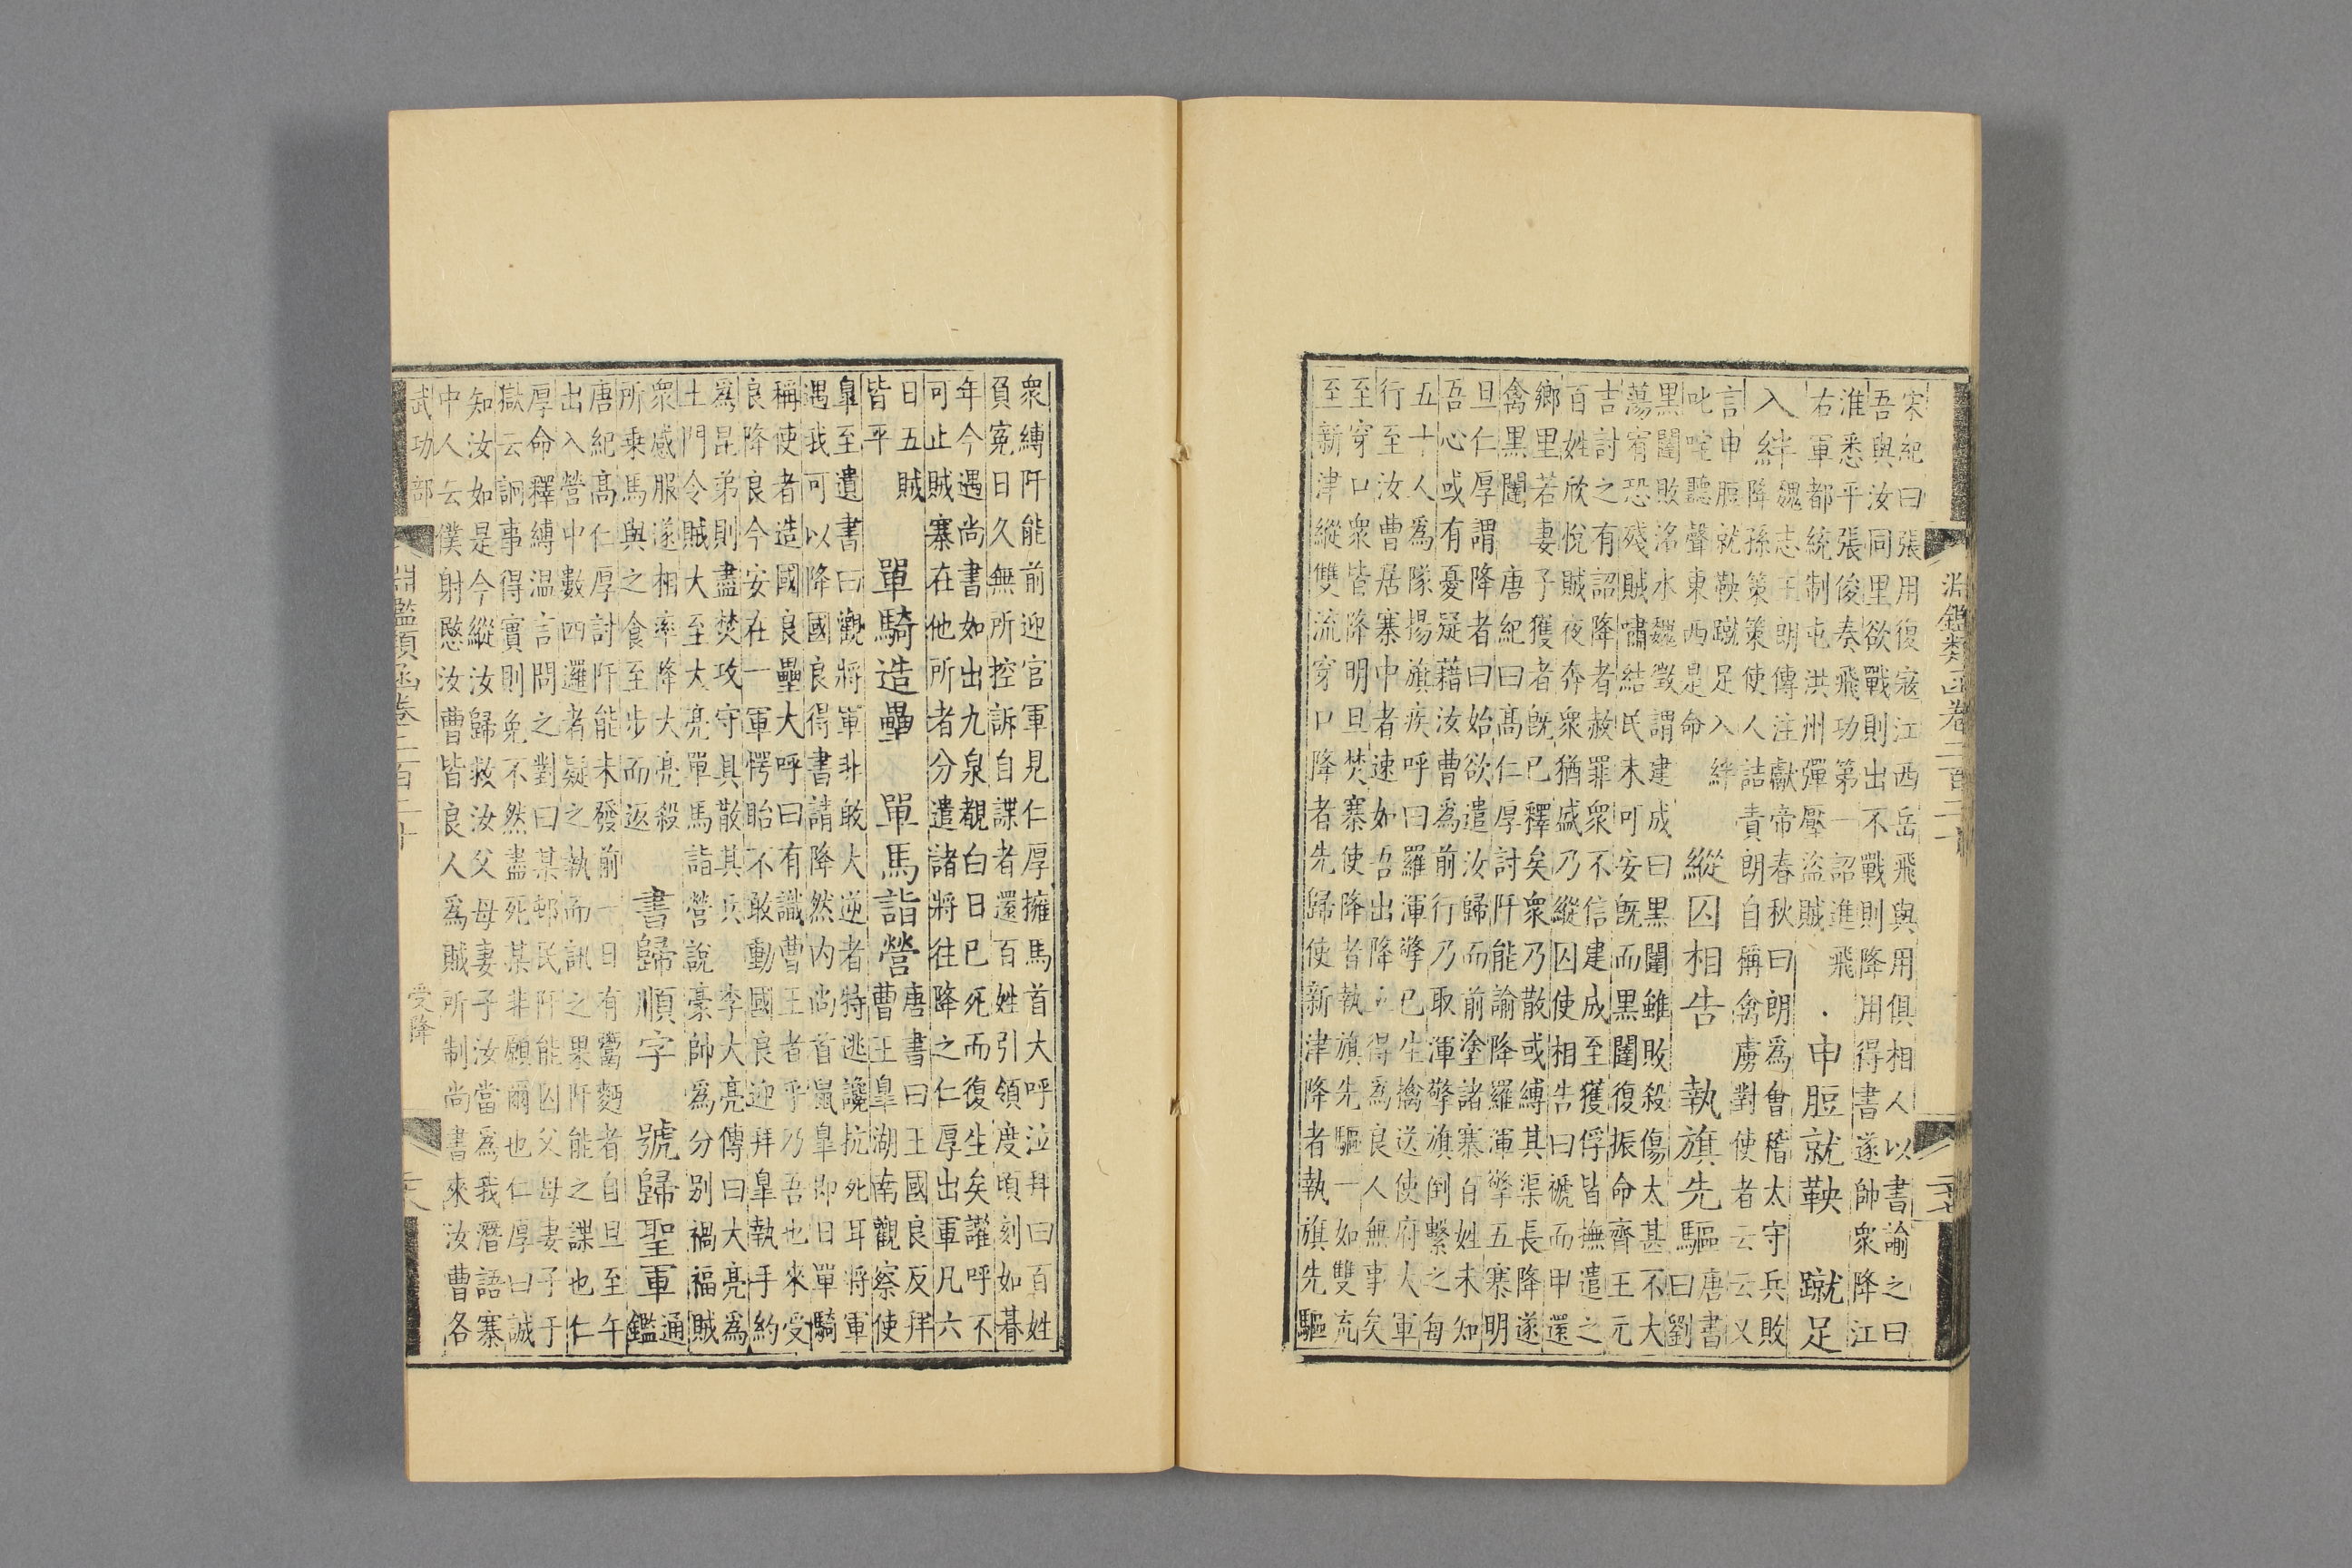 淵鑑類函卷二百二十
宋紀曰張用復寇江西岳飛與用俱相人以書諭之曰
吾與汝同里欲戰則出不戰則降用得書遂帥衆降江
淮悉平張俊奏飛功第一詔進飛
右軍都統制屯洪州彈壓盜賊
申脰就鞅 蹴足
入絆
魏志王朗傳注獻帝春秋曰朗為會稽太守兵敗
降孫策策使人詰責朗自稱禽虜對使者云云又
言申脰就鞅蹴足入絆
叱咤聽聲東西是命
縱囚相告 執旗先驅
唐書
曰劉
黒闥敗洺水魏徵謂建成曰黒闥雖敗殺傷太甚不大
蕩宥恐殘賊嘯結民未可安既而黒闥復振命齊王元
吉討之有詔降者赦罪衆不信建成至獲俘皆撫遣之
百姓欣悅賊夜奔衆猶盛乃縱囚使相告曰褫而甲還
鄉里若妻子獲者既已釋矣衆乃散或縛其渠長降遂
禽黒闥 唐紀曰高仁厚討阡能諭降羅渾擎五寨明
旦仁厚謂降者曰始欲遣汝歸而前塗諸寨百姓未知
吾心或有憂疑藉汝曹為前行乃取渾擎旗倒繫之每
五十人為隊揚旗疾呼曰羅渾擎已生擒送使府大軍
行至汝曹居寨中者速如吾出降立得為良人無事矣
至穿口衆皆降明旦焚寨使降者執旗先驅一如雙流
至新津縱雙流穿口降者先歸使新津降者執旗先驅
衆縛阡能前迎官軍見仁厚擁馬首大呼泣拜曰百姓
負寃日久無所控訴自諜者還百姓引領度頃刻如朞
年今遇尚書如出九泉覩白日已死而復生矣讙呼不
可止賊寨在他所者分遣諸將往降之仁厚出軍凡六
日五賊
皆平
單騎造壘 單馬詣營
唐書曰王國良反拜
曹王皐湖南觀察使
皐至遺書曰觀將軍非敢大逆者特逃讒抗死耳將軍
遇我可以降國良得書請降然内尚首鼠皐即日單騎
稱使者造國良壘大呼曰有識曹王者乎乃吾也來受
良降良今安在一軍愕眙不敢動國良迎拜皐執手約
為昆弟則盡焚攻守具散其兵 李大亮傳曰大亮為
土門令賊大至大亮單馬詣營說豪帥為分別禍福賊
衆感服遂相率降大亮殺
所乗馬與之食至步而返
書歸順字 號歸聖軍
通
鑑
唐紀高仁厚討阡能未發前一日有鬻麪者自旦至午
出入營中數四邏者疑之執而訊之果阡能之諜也仁
厚命釋縛温言問之對曰某邨民阡能囚父母妻子于
獄云詗事得實則免不然盡死某非願爾也仁厚曰誠
知汝如是今縱汝歸救汝父母妻子汝當為我潛語寨
中人云僕射愍汝曹皆良人為賊所制尚書來汝曹各
武功部
淵鑑類函卷二百二十
受降